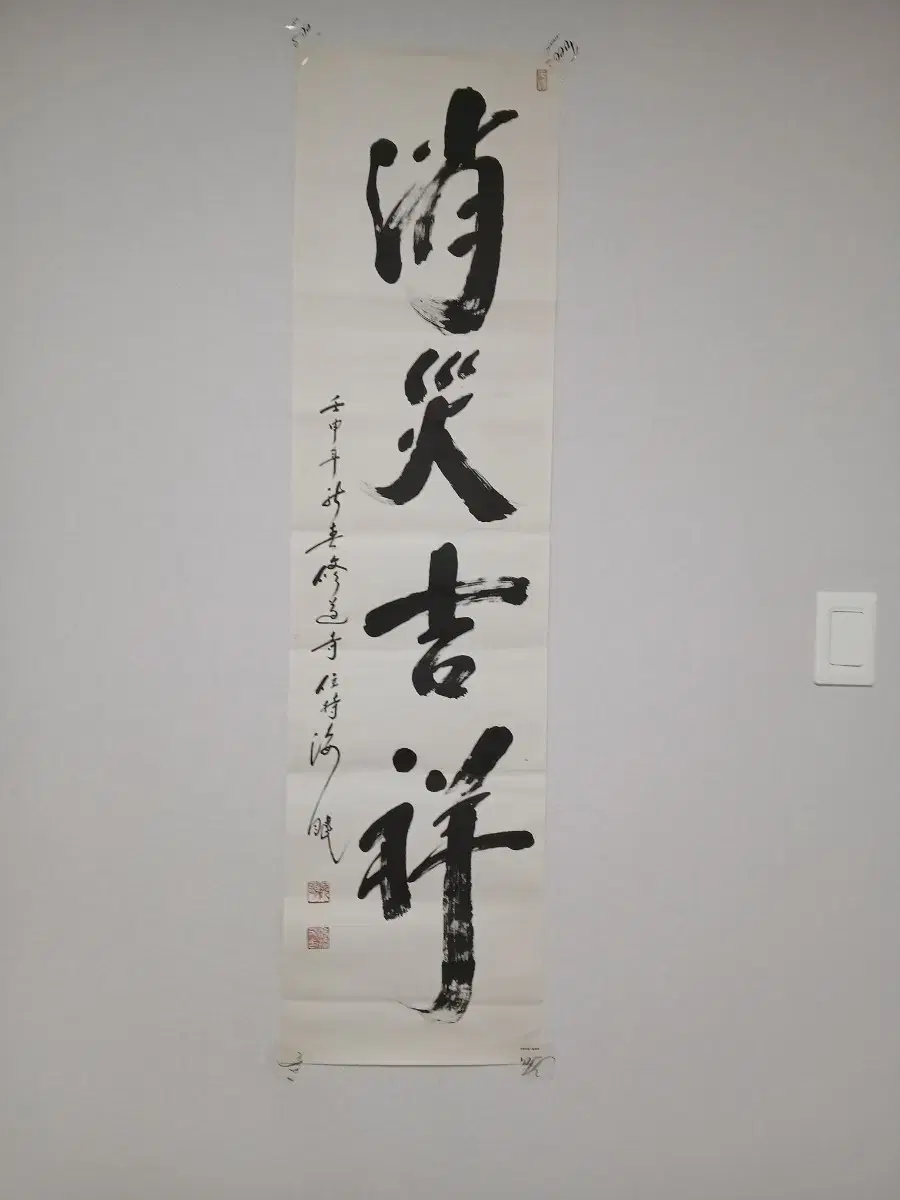 消災吉祥
壬申年新春修道寺住持海眼